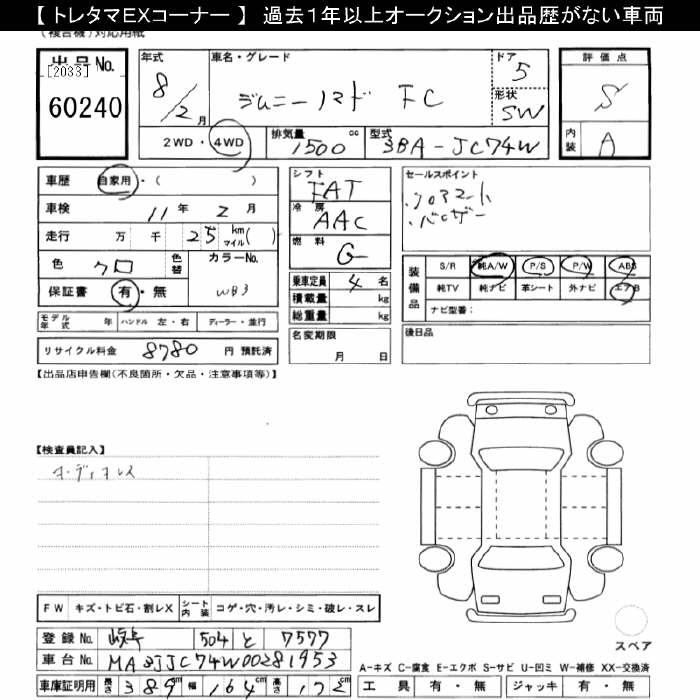 【 トレタマEXコーナー 】 過去1年以上オークション出品歴がない車両
(複合機)対応用紙
出品No.
[2033]
60240
年式
8/2月
車名・グレード
ジムニーノマド FC
ドア
5
形状
SW
評価点
S
内装
A
2WD・4WD
排気量
1500cc
型式
3BA-JC74W
車歴
自家用・( )
車検
11年 2月
走行
万 千 25 km マイル( )
色
クロ
色替
カラーNo.
WB3
保証書
有・無
モデル年式 年 ハンドル 左・右 ディーラー・並行
リサイクル料金 8780 円 預託済
シフト
FAT
冷房
AAC
燃料
G
乗車定員 4 名
積載量 kg
総重量 kg
名変期限
月 日
セールスポイント
・バイザー
装備品
S/R 純A/W P/S P/W ABS
純TV 純ナビ 革シート 外ナビ エアB
ナビ型番：
後日品
【出品店申告欄(不良箇所・欠品・注意事項等)】
【検査員記入】
オーディオレス
FW キズ・トビ石・割レX シート内装 コゲ・穴・汚レ・シミ・破レ・スレ
登録No. 岐阜 504 と 7577
車台No. MA3JJC74W00281953
車庫証明用 長さ 389cm 幅 164cm 高さ 172cm
スペア
A-キズ C-腐食 E-エクボ S-サビ U-凹ミ W-補修 XX-交換済
工具 有・無 ジャッキ 有・無